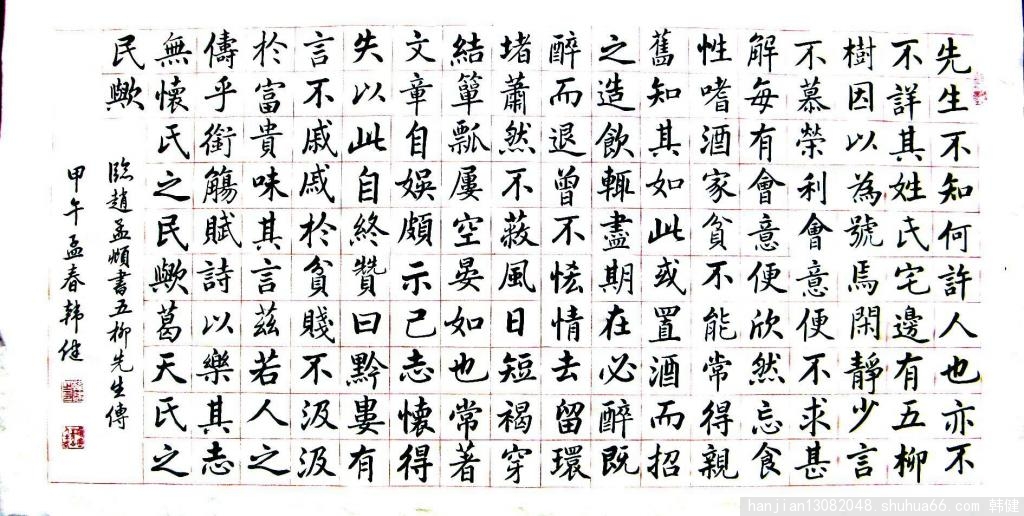 先生不知何許人也亦不
不詳其姓氏宅邊有五柳
樹因以為號焉閑靜少言
不慕榮利會意便不求甚
解每有會意便欣然忘食
性嗜酒家貧不能常得親
舊知其如此或置酒而招
之造飲輒盡期在必醉既
醉而退曾不恡情去留環
堵蕭然不蔽風日短褐穿
結簞瓢屢空晏如也常著
文章自娛頗示己志懷得
失以此自終贊曰黔婁有
言不戚戚於貧賤不汲汲
於富貴味其言茲若人之
儔乎銜觴賦詩以樂其志
無懷氏之民歟葛天氏之
民歟
臨趙孟頫書五柳先生傳
甲午孟春韩健
hanjian13082048.shuhua66.com 韩健